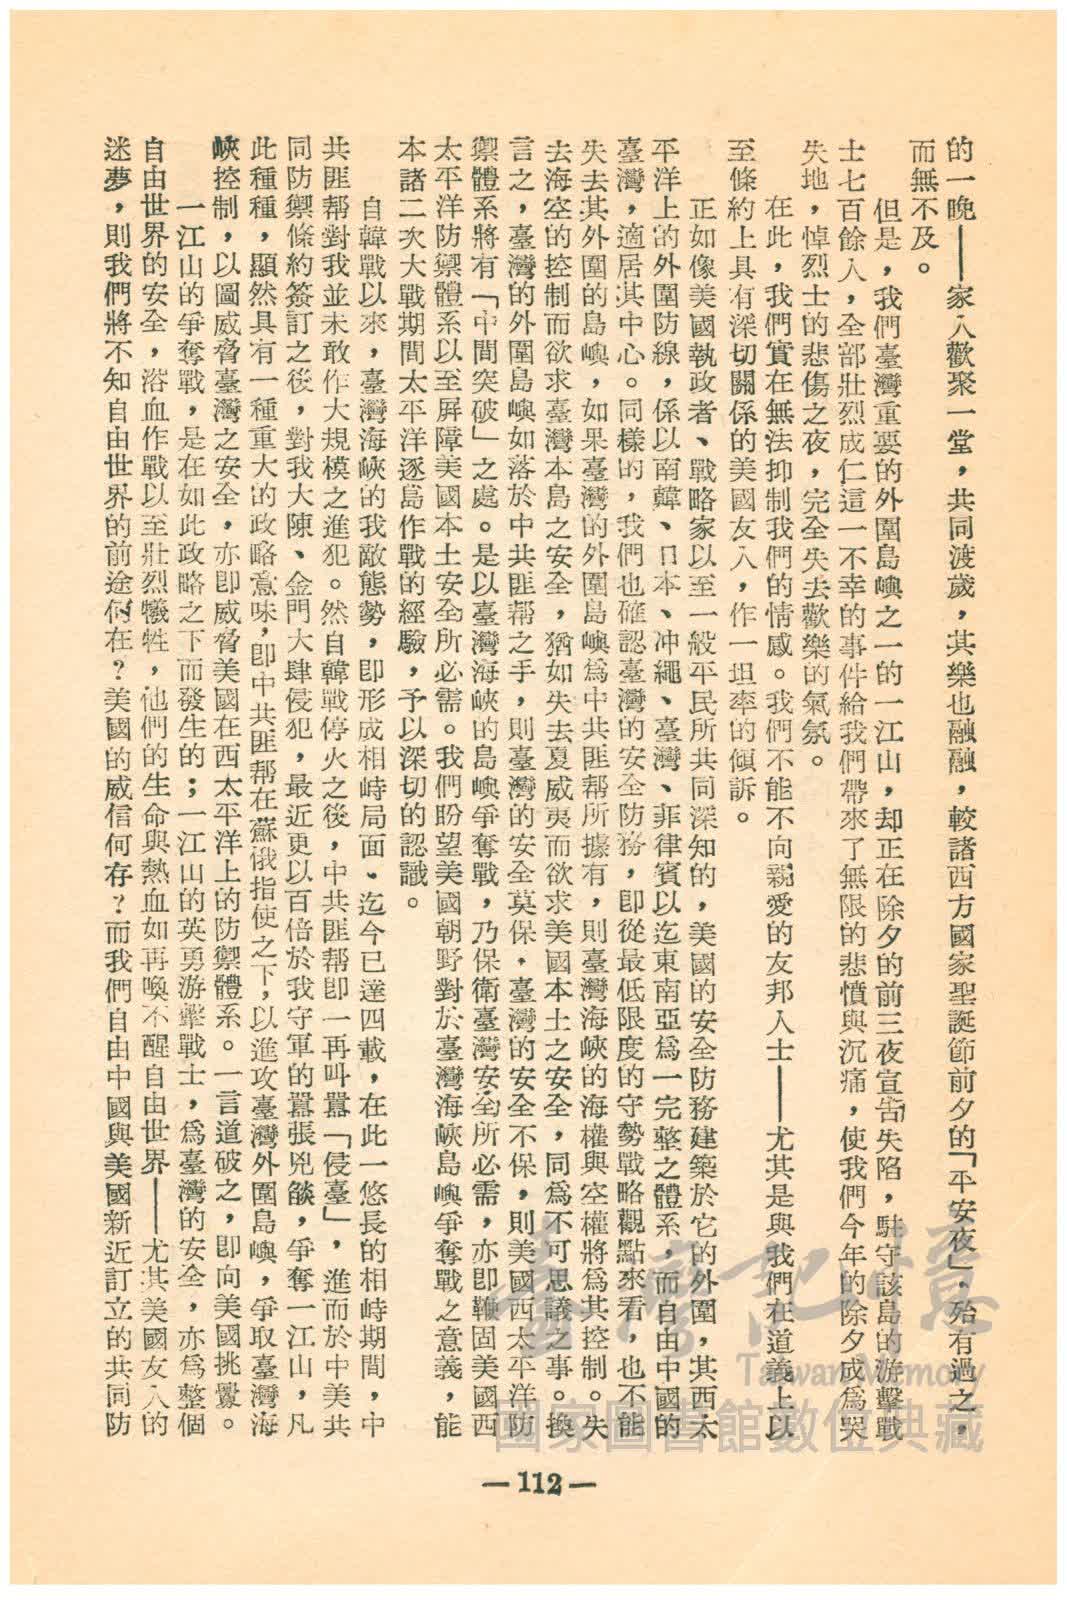 的一晚——家人歡聚一堂，共同渡歲，其樂也融融，較諸西方國家聖誕節前夕的「平安夜」，殆有過之，
而無不及。
但是，我們臺灣重要的外圍島嶼之一的一江山，却正在除夕的前三夜宣告失陷，駐守該島的游擊戰
士七百餘人，全部壯烈成仁這一不幸的事件給我們帶來了無限的悲憤與沉痛，使我們今年的除夕成爲哭
失地，悼烈士的悲傷之夜，完全失去歡樂的氣氛。
在此，我們實在無法抑制我們的情感。我們不能不向親愛的友邦人士——尤其是與我們在道義上以
至條約上具有深切關係的美國友人，作一坦率的傾訴。
正如像美國執政者、戰略家以至一般平民所共同深知的，美國的安全防務建築於它的外圍，其西太
平洋上的外圍防線，係以南韓、日本、冲繩、臺灣、菲律賓以迄東南亞爲一完整之體系，而自由中國的
臺灣，適居其中心。同樣的，我們也確認臺灣的安全防務，即從最低限度的守勢戰略觀點來看，也不能
失去其外圍的島嶼，如果臺灣的外圍島嶼爲中共匪幫所據有，則臺灣海峽的海權與空權將爲其控制。失
去海空的控制而欲求臺灣本島之安全，猶如失去夏威夷而欲求美國本土之安全，同爲不可思議之事。換
言之，臺灣的外圍島嶼如落於中共匪幫之手，則臺灣的安全莫保，臺灣的安全不保，則美國西太平洋防
禦體系將有「中間突破」之處。是以臺灣海峽的島嶼爭奪戰，乃保衛臺灣安全所必需，亦即鞭固美國西
太平洋防禦體系以至屏障美國本土安全所必需。我們盼望美國朝野對於臺灣海峽島嶼爭奪戰之意義，能
本諸二次大戰期間太平洋逐島作戰的經驗，予以深切的認識。
自韓戰以來，臺灣海峽的我敵態勢，即形成相峙局面，迄今已達四載，在此一悠長的相峙期間，中
共匪幫對我並未敢作大規模之進犯。然自韓戰停火之後，中共匪幫即一再叫囂「侵臺」，進而於中美共
同防禦條約簽訂之後，對我大陳、金門大肆侵犯，最近更以百倍於我守軍的囂張兇燄，爭奪一江山，凡
此種種，顯然具有一種重大的政略意味，即中共匪幫在蘇俄指使之下，以進攻臺灣外圍島嶼，爭取臺灣海
峽控制，以圖威脅臺灣之安全，亦即威脅美國在西太平洋上的防禦體系。一言道破之，即向美國挑釁。
一江山的爭奪戰，是在如此政略之下而發生的；一江山的英勇游擊戰士，爲臺灣的安全，亦爲整個
自由世界的安全，浴血作戰以至壯烈犧牲，他們的生命與熱血如再喚不醒自由世界——尤其美國友人的
迷夢，則我們將不知自由世界的前途何在？美國的威信何存？而我們自由中國與美國新近訂立的共同防
—112—
臺灣記憶
Taiwan Memory
國家圖書館數位典藏